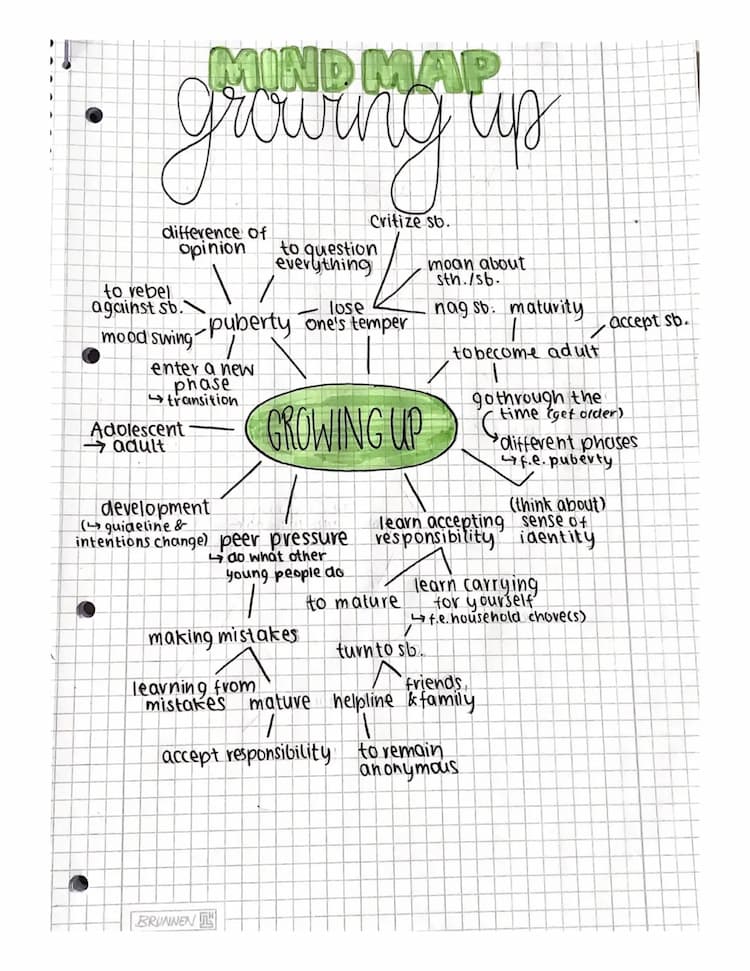 MIND MAP
growing up
critize sb.
difference of
opinion
to question
everything
moan about
sth./sb.
to rebel
against sb.
lose
one's temper
nag sb.
maturity
accept sb.
mood swing
puberty
to become adult
enter a new
phase
↳ transition
go through the
time (get order)
Adolescent
→ adult
GROWING UP
different phases
↳ f.e. puberty
development
(↳ guideline &
intentions change)
peer pressure
↳ do what other
young people do
learn accepting
responsibility
(think about)
sense of
identity
to mature
learn carrying
for yourself
↳ f.e. household chore(s)
making mistakes
turn to sb.
learning from
mistakes
mature
helpline
friends
& family
accept responsibility
to remain
anonymous
BRUNNEN